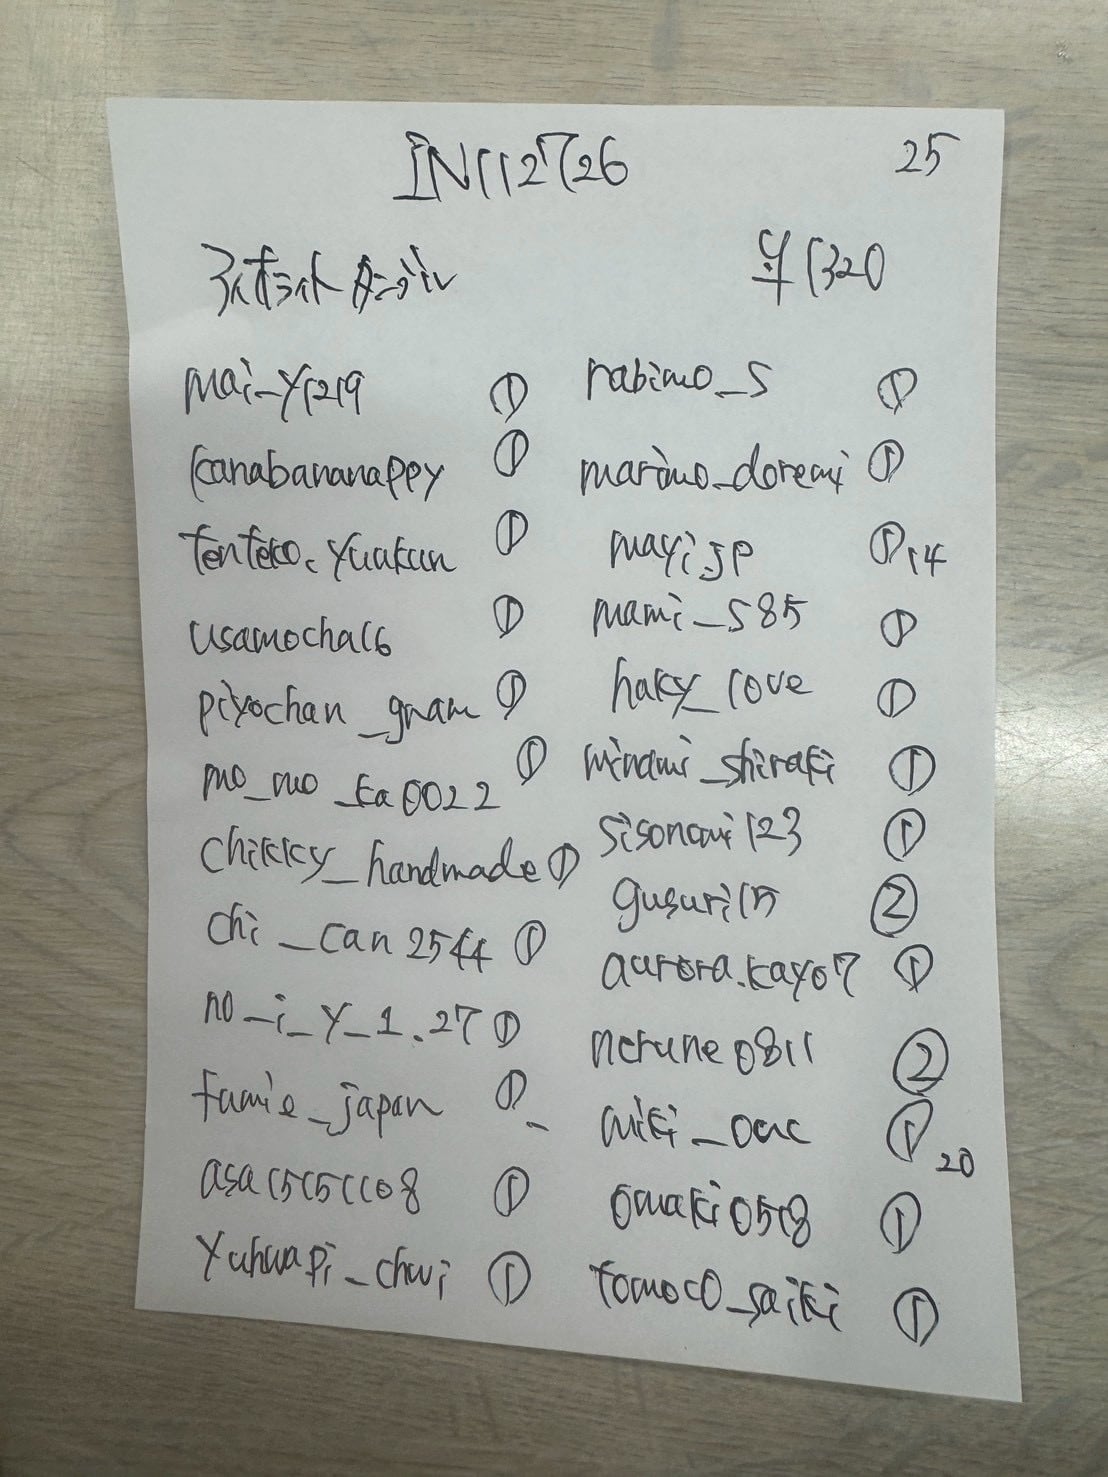 IN112726
25
単1320
mai_y1219 ①
kanabananappy ①
tenteko.yuukun ①
usamocha16 ①
piyochan_gnam ①
mo_mo_ka0022 ①
chikky_handmade ①
chi_can2544 ①
no_i_y_1.27 ①
fumie_japan ①
asa15151108 ①
yuhuapi_chui ①
rabimo_s ①
marimo_doremi ①
mayi.jp ① 14
mami_s85 ①
haky_love ①
minami_shiraki ①
sisonomi123 ①
gusuri15 ②
aurora.kayo7 ①
nerune0811 ②
miki_ouc ① 20
omaki0518 ①
tomoco_saiki ①